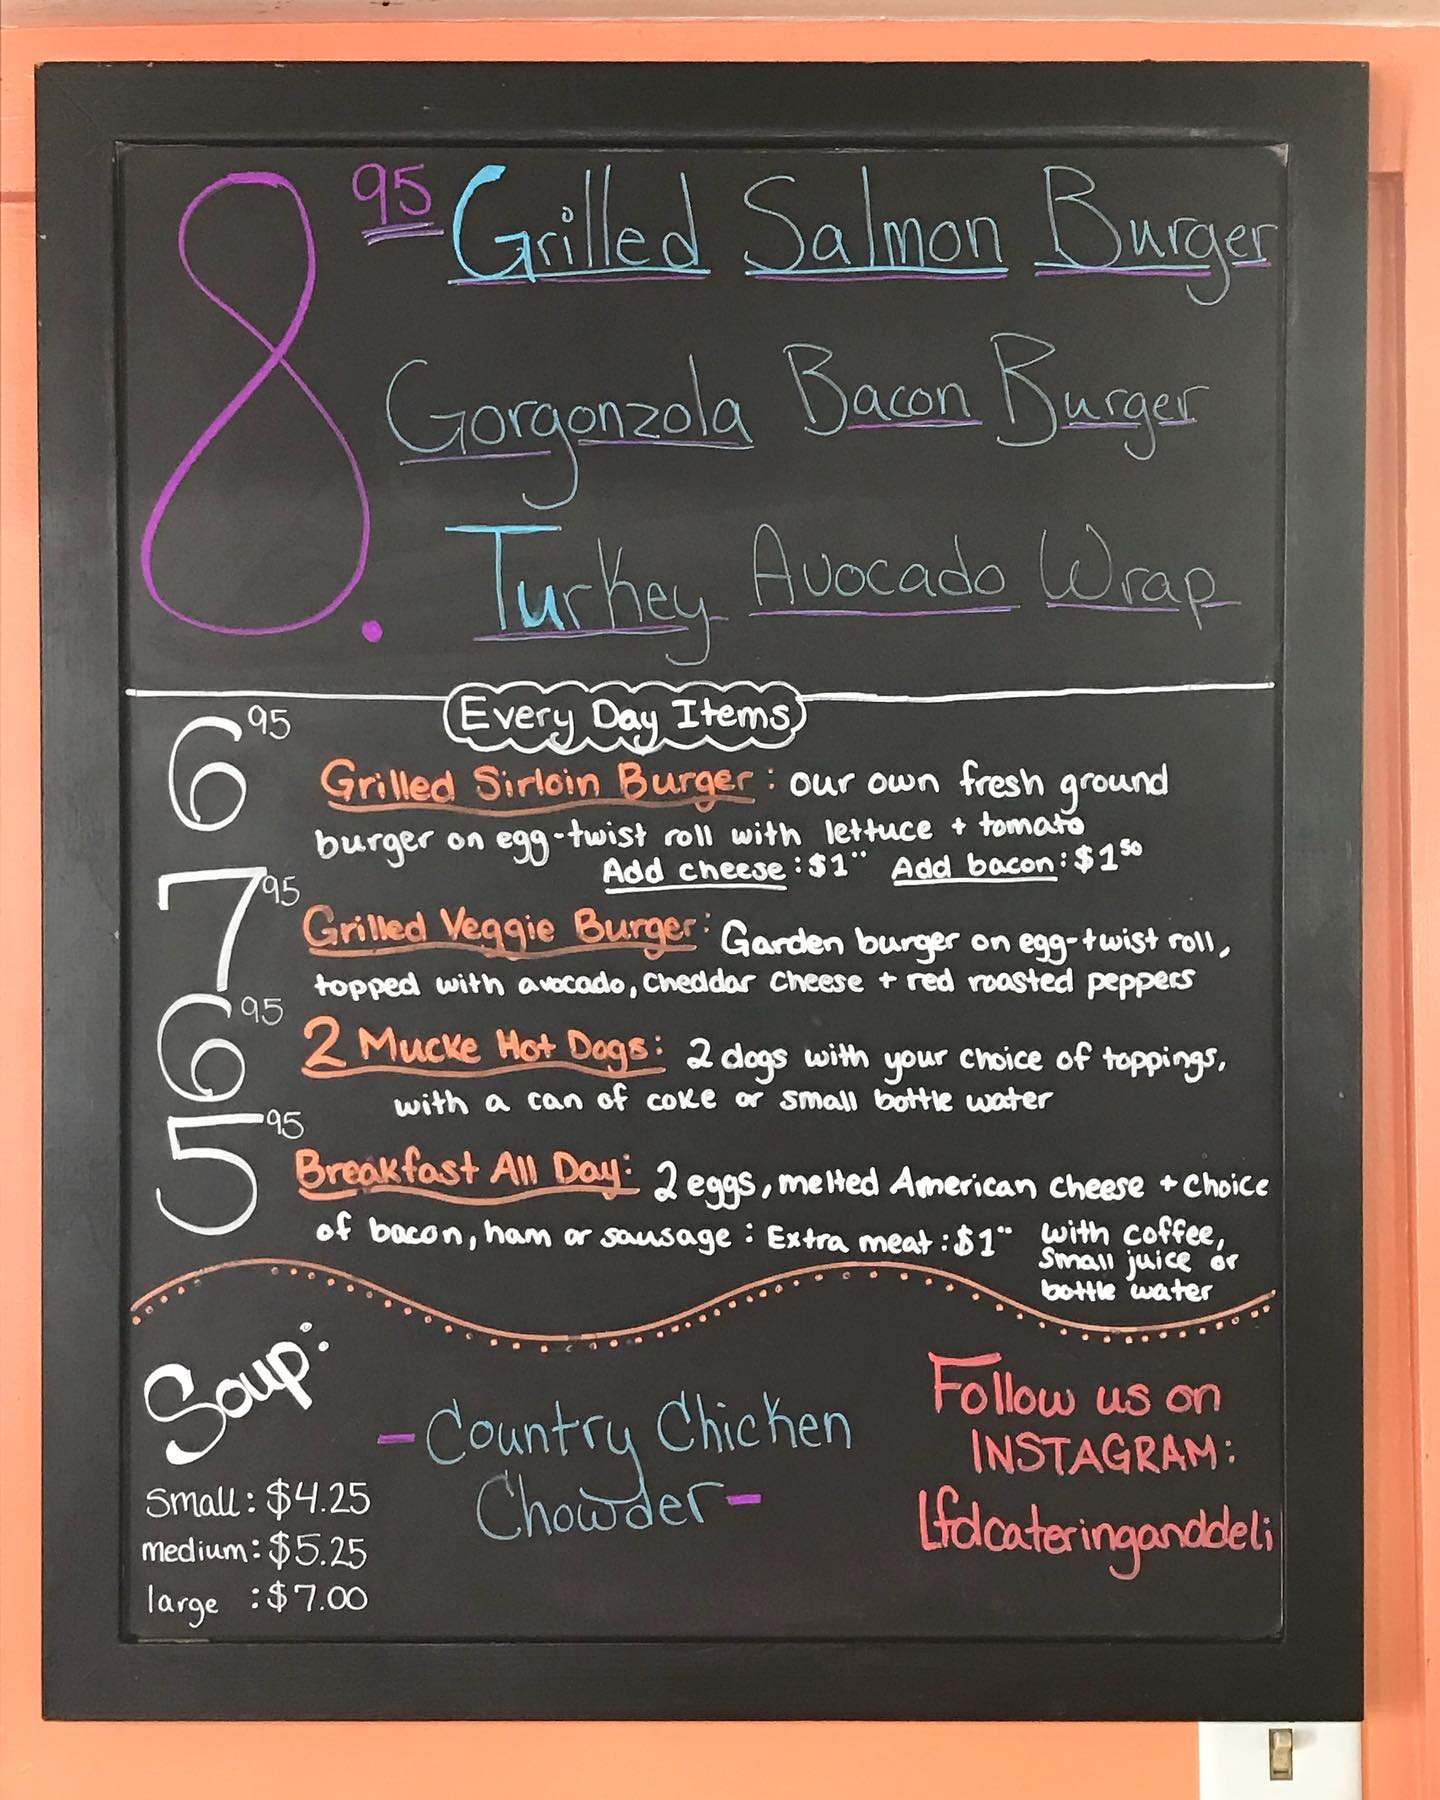 8.95 Grilled Salmon Burger
Gorgonzola Bacon Burger
Turkey Avocado Wrap
Every Day Items
6 95
Grilled Sirloin Burger: our own fresh ground
burger on egg-twist roll with lettuce + tomato
Add cheese: $1 00 Add bacon: $1 50
7 95
Grilled Veggie Burger: Garden burger on egg-twist roll,
topped with avocado, cheddar cheese + red roasted peppers
6 95
2 Mucke Hot Dogs: 2 dogs with your choice of toppings,
with a can of coke or small bottle water
5 95
Breakfast All Day: 2 eggs, melted American cheese + choice
of bacon, ham or sausage: Extra meat: $1 00 with coffee,
small juice or
bottle water
Soup:
small: $4.25
medium: $5.25
large: $7.00
- Country Chicken
Chowder -
Follow us on
INSTAGRAM:
Lfdcateringanddeli